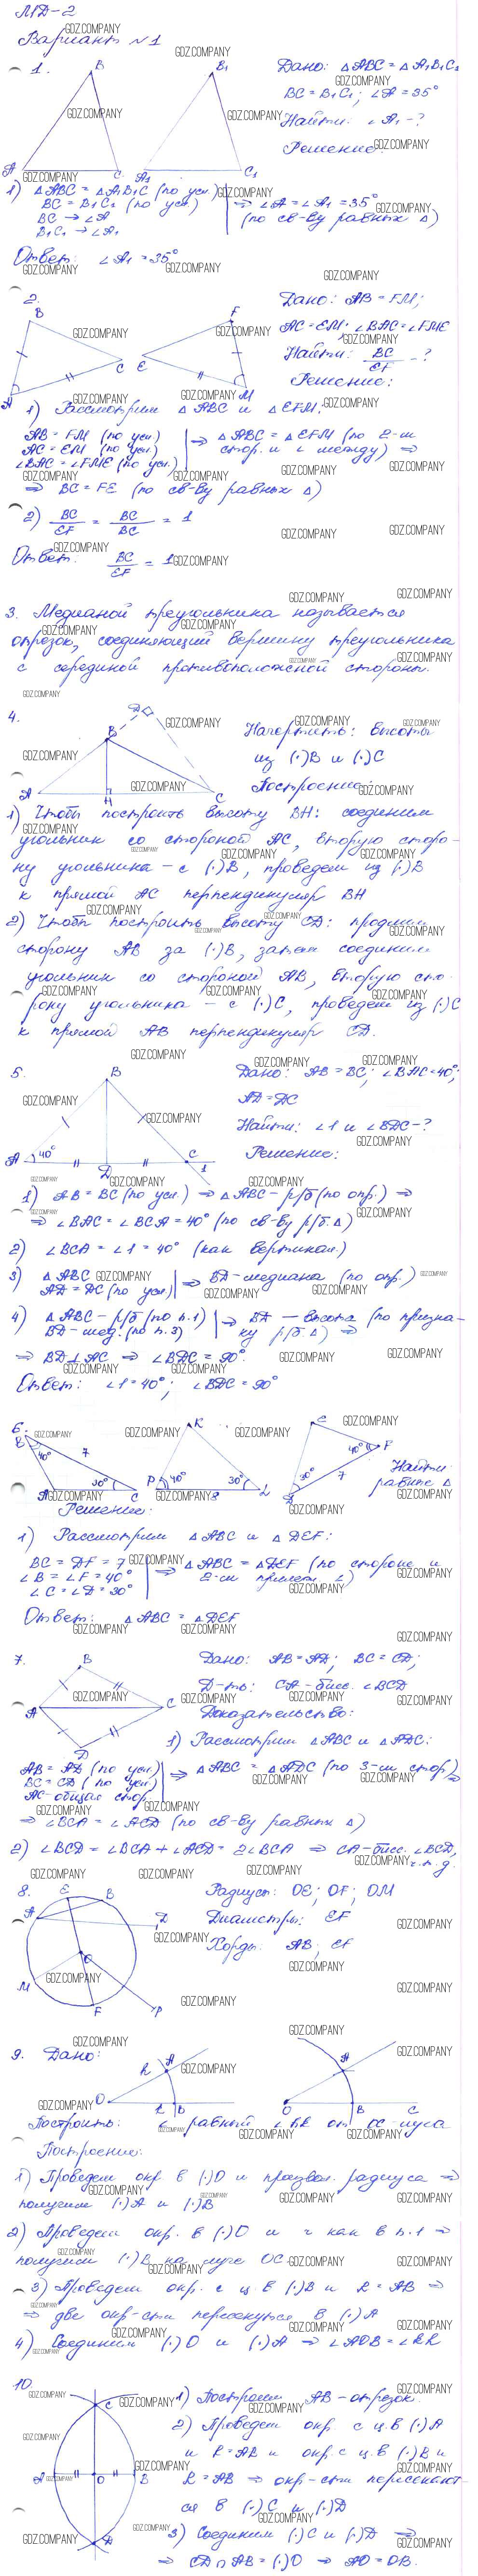 МД-2
Вариант №1
1.
Дано: △ABC = △A₁B₁C₁
BC = B₁C₁; ∠A = 35°
Найти: ∠A₁ - ?
Решение:
1) △ABC = △A₁B₁C (по усл.)
BC = B₁C₁ (по усл)
BC → ∠A
B₁C₁ → ∠A₁
⇒ ∠A = ∠A₁ = 35°
(по св-ву равных △)
Ответ: ∠A₁ = 35°
2.
Дано: AB = FM;
AC = EM; ∠BAC = ∠FME
Найти: BC/EF - ?
Решение:
1) Рассмотрим △ABC и △EFM:
AB = FM (по усл)
AC = EM (по усл)
∠BAC = ∠FME (по усл.)
⇒ △ABC = △EFM (по 2-м
стор. и ∠ между) ⇒
⇒ BC = FE (по св-ву равных △)
2) BC/EF = BC/BC = 1
Ответ: BC/EF = 1
3. Медианой треугольника называется
отрезок, соединяющий вершину треугольника
с серединой противоположной стороны.
4.
Начертить: высоты
из (·)B и (·)C
Построение:
1) Чтобы построить высоту BH: соединим
угольник со стороной AC, вторую сторо-
ну угольника - с (·)B, проведем из (·)B
к прямой AC перпендикуляр BH
2) Чтобы построить высоту CD: продлим
сторону AB за (·)B, затем соединим
угольник со стороной AB, вторую сто-
рону угольника - с (·)C, проведем из (·)C
к прямой AB перпендикуляр CD.
5.
Дано: AB = BC; ∠BAC = 40°;
AD = DC
Найти: ∠1 и ∠BDC - ?
Решение:
1) AB = BC (по усл) ⇒ △ABC - р/б (по опр.) ⇒
⇒ ∠BAC = ∠BCA = 40° (по св-ву р/б △)
2) ∠BCA = ∠1 = 40° (как вертикал.)
3) △ABC
AD = DC (по усл)
⇒ BD - медиана (по опр.)
4) △ABC - р/б (по п.1)
BD - мед. (по п.3)
⇒ BD - высота (по призна-
ку р/б △) ⇒
⇒ BD ⊥ AC ⇒ ∠BDC = 90°.
Ответ: ∠1 = 40°; ∠BDC = 90°
6.
Найти
равные △
Решение:
1) Рассмотрим △ABC и △DEF:
BC = DF = 7
∠B = ∠F = 40°
∠C = ∠D = 30°
⇒ △ABC = △DEF (по стороне и
2-м прилеж. ∠)
Ответ: △ABC = △DEF
7.
Дано: AB = AD; BC = CD;
Д-ть: CA - бисс. ∠BCD
Доказательство:
1) Рассмотрим △ABC и △ADC:
AB = AD (по усл)
BC = CD (по усл)
AC - общая стор.
⇒ △ABC = △ADC (по 3-м стор) ⇒
⇒ ∠BCA = ∠ACD (по св-ву равных △)
2) ∠BCD = ∠BCA + ∠ACD = 2∠BCA ⇒ CA - бисс. ∠BCD,
ч.т.д.
8.
Радиусы: OE; OF; OM
Диаметры: EF
Хорды: AB; EF
9. Дано:
Построить: ∠ равный ∠ от OC-луча
Построение:
1) Проведем окр. в (·)O и произвол. радиуса ⇒
получим (·)A и (·)B
2) Проведем окр. в (·)O и r как в п.1 ⇒
получим (·)B на луче OC.
3) Проведем окр. с ц. в (·)B и R = AB ⇒
⇒ две окр-сти пересекутся в (·)A
4) Соединим (·)O и (·)A ⇒ ∠AOB = ∠hk
10.
1) Построим AB - отрезок.
2) Проведем окр. с ц. в (·)A
и R = AB и окр. с ц. в (·)B и
R = AB ⇒ окр-сти пересекают-
ся в (·)C и (·)D
3) Соединим (·)C и (·)D ⇒
⇒ CD ∩ AB = (·)O ⇒ AO = OB.